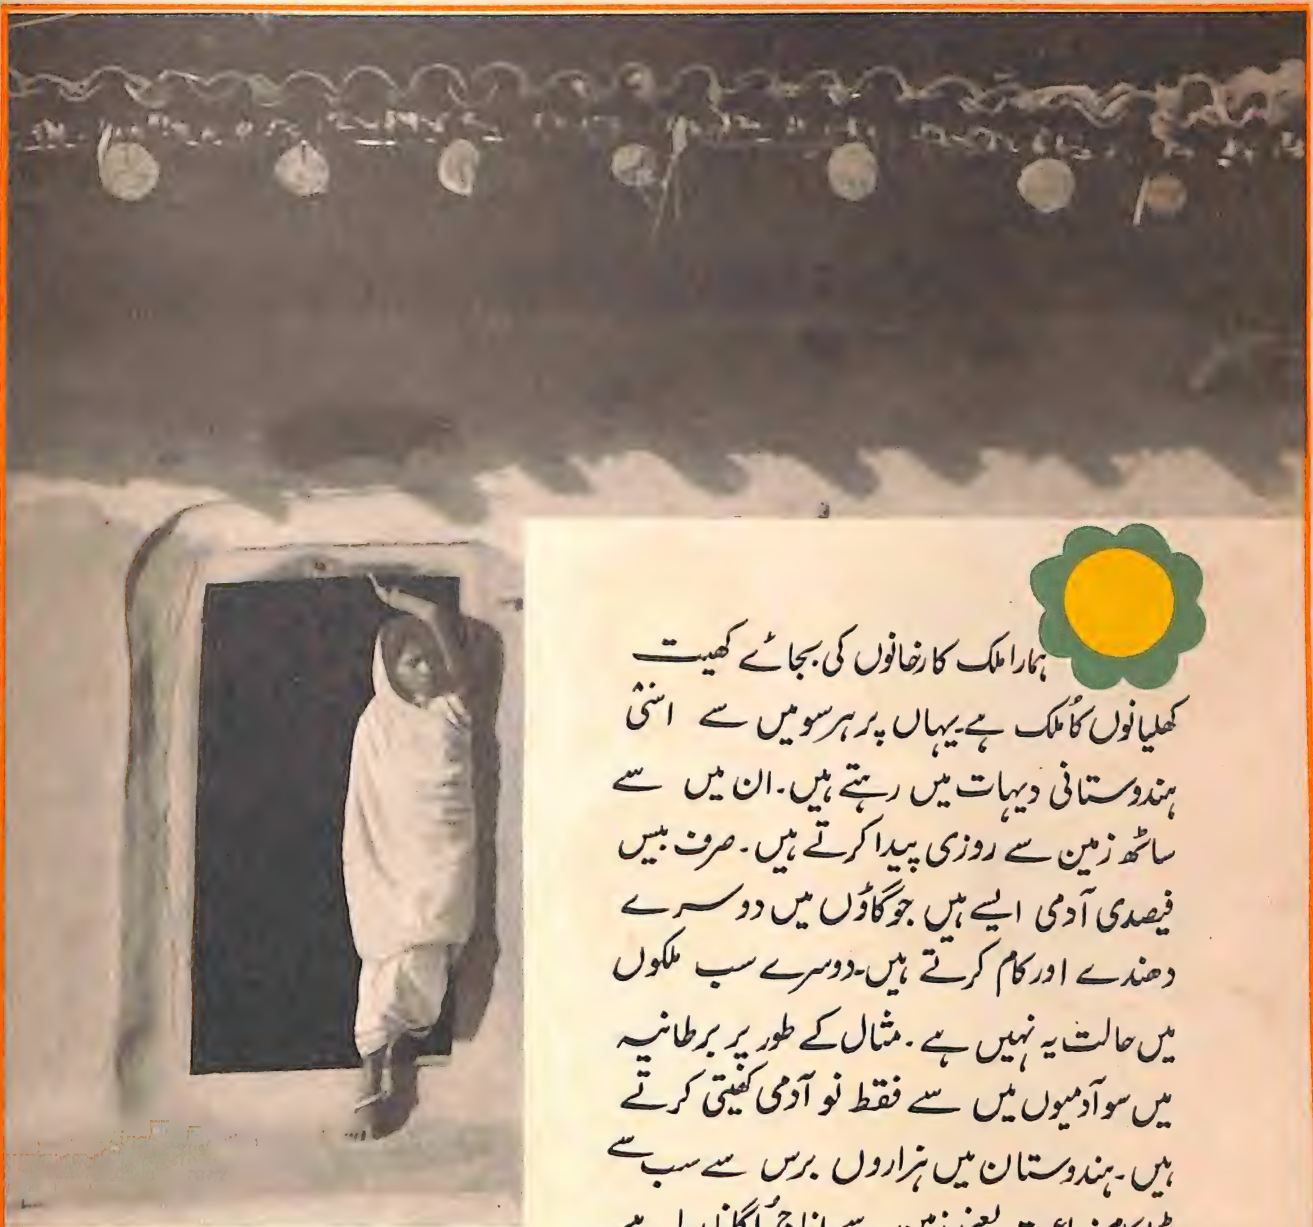 ہمارا ملک کارخانوں کی بجائے کھیت
کھلیانوں کا مُلک ہے۔یہاں پر ہر سو میں سے اسّی
ہندوستانی دیہات میں رہتے ہیں۔ان میں سے
ساٹھ زمین سے روزی پیدا کرتے ہیں۔صرف بیس
فیصدی آدمی ایسے ہیں جو گاؤں میں دوسرے
دھندے اور کام کرتے ہیں۔دوسرے سب ملکوں
میں حالت یہ نہیں ہے۔مثال کے طور پر برطانیہ
میں سو آدمیوں میں سے فقط نو آدمی کھیتی کرتے
ہیں۔ہندوستان میں ہزاروں برس سے سب سے